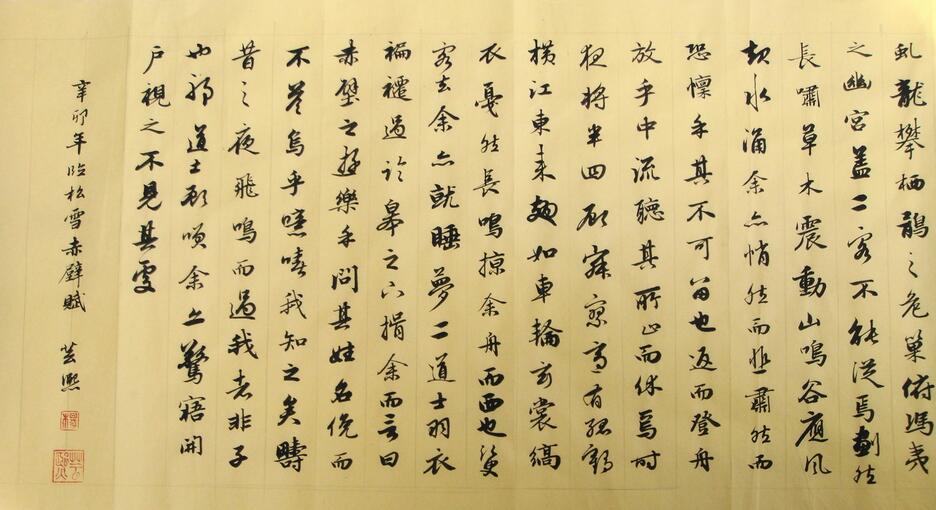 虬龍攀栖鶻之危巢俯馮夷
之幽宮蓋二客不能從焉劃然
長嘯草木震動山鳴谷應風
起水涌余亦悄然而悲肅然而
恐懍乎其不可留也返而登舟
放乎中流聽其所止而休焉時
夜將半四顧寂寥適有孤鶴
橫江東來翅如車輪玄裳縞
衣戛然長鳴掠余舟而西也須臾
客去余亦就睡夢二道士羽衣
褊過臨皋之下揖余而言曰
赤壁之遊樂乎問其姓名俛而
不答烏乎噫嘻我知之矣疇
昔之夜飛鳴而過我者非子
也邪道士顧笑余亦驚寤開
戶視之不見其處
辛卯年臨松雪赤壁賦 芸熙